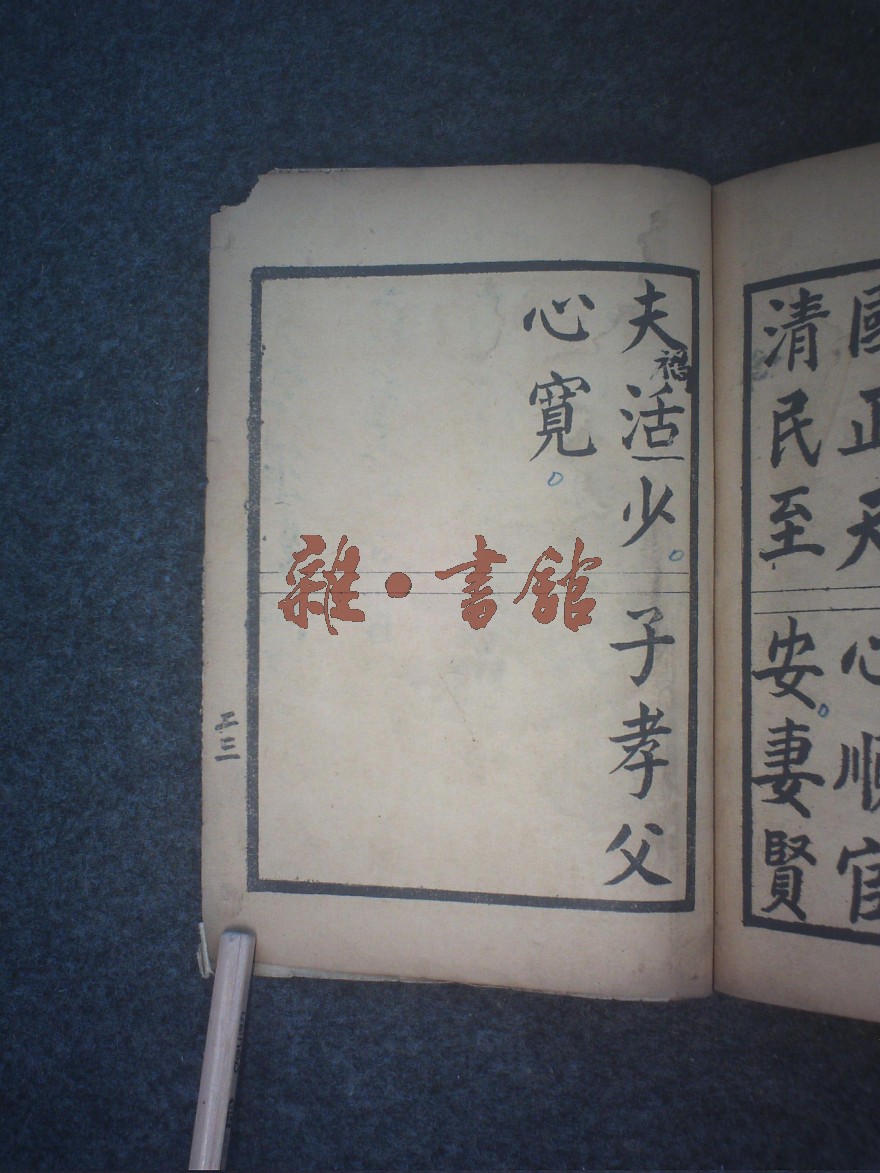 國正天心順官
清民至安妻賢
夫活少子孝父
禍
心寬
雜·書館